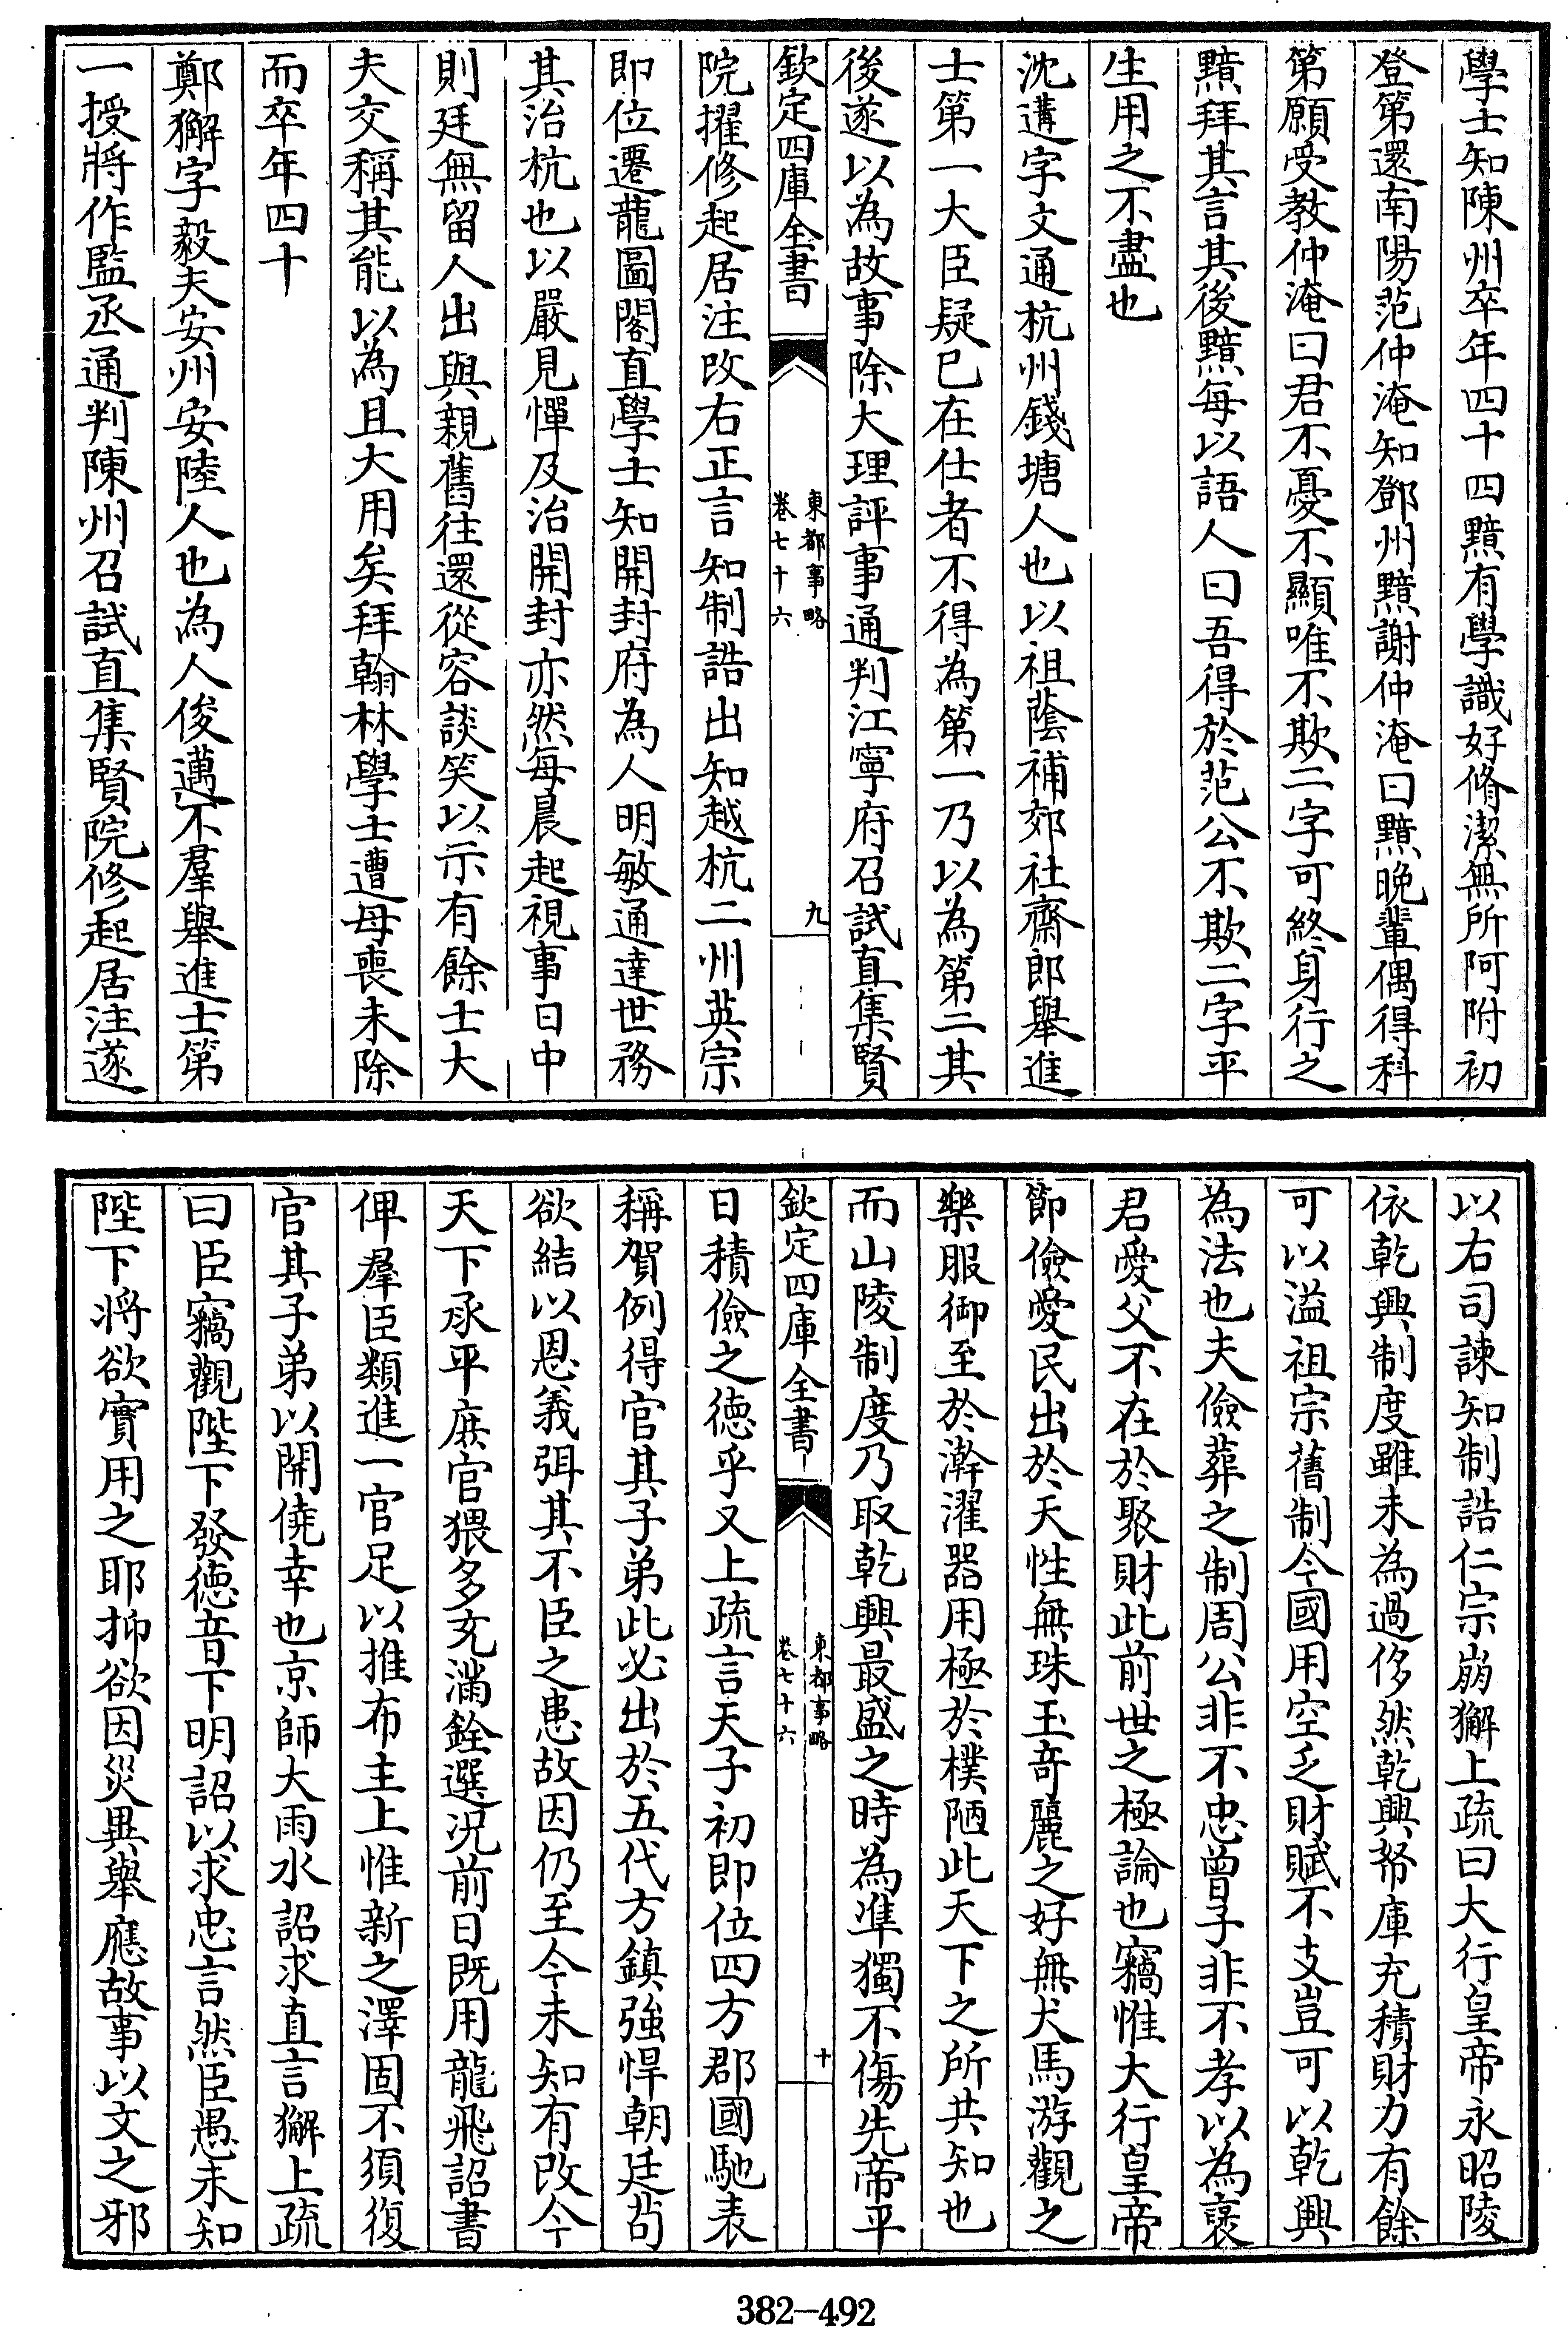 學士知陳州卒年四十四黯有學識好脩潔無所阿附初
登第還南陽范仲淹知鄧州黯謝仲淹曰黯晚輩偶得科
第願受教仲淹曰君不憂不顯唯不欺二字可終身行之
黯拜其言其後黯每以語人曰吾得於范公不欺二字平
生用之不盡也
沈遘字文通杭州錢塘人也以祖蔭補郊社齋郎舉進
士第一大臣疑已在仕者不得為第一乃以為第二其
後遂以為故事除大理評事通判江寧府召試直集賢
欽定四庫全書
東都事略
卷七十六
九
院擢修起居注改右正言知制誥出知越杭二州英宗
即位遷龍圖閣直學士知開封府為人明敏通達世務
其治杭也以嚴見憚及治開封亦然每晨起視事日中
則廷無留人出與親舊往還從容談笑以示有餘士大
夫交稱其能以為且大用矣拜翰林學士遭母喪未除
而卒年四十
鄭獬字毅夫安州安陸人也為人俊邁不羣舉進士第
一授將作監丞通判陳州召試直集賢院修起居注遂
以右司諫知制誥仁宗崩獬上疏曰大行皇帝永昭陵
依乾興制度雖未為過侈然乾興帑庫充積財力有餘
可以溢祖宗舊制今國用空乏財賦不支豈可以乾興
為法也夫儉葬之制周公非不忠曾子非不孝以為裦
君愛父不在於聚財此前世之極論也竊惟大行皇帝
節儉愛民出於天性無珠玉奇麗之好無犬馬游觀之
樂服御至於澣濯器用極於樸陋此天下之所共知也
而山陵制度乃取乾興最盛之時為準獨不傷先帝平
欽定四庫全書
東都事略
卷七十六
十
日積儉之德乎又上疏言天子初即位四方郡國馳表
稱賀例得官其子弟此必出於五代方鎮強悍朝廷茍
欲結以恩義弭其不臣之患故因仍至今未知有改今
天下承平庶官猥多充滿銓選況前日既用龍飛詔書
俾羣臣類進一官足以推布主上惟新之澤固不須復
官其子弟以開僥幸也京師大雨水詔求直言獬上疏
曰臣竊觀陛下發德音下明詔以求忠言然臣愚未知
陛下將欲實用之耶抑欲因災異舉應故事以文之邪
382-492